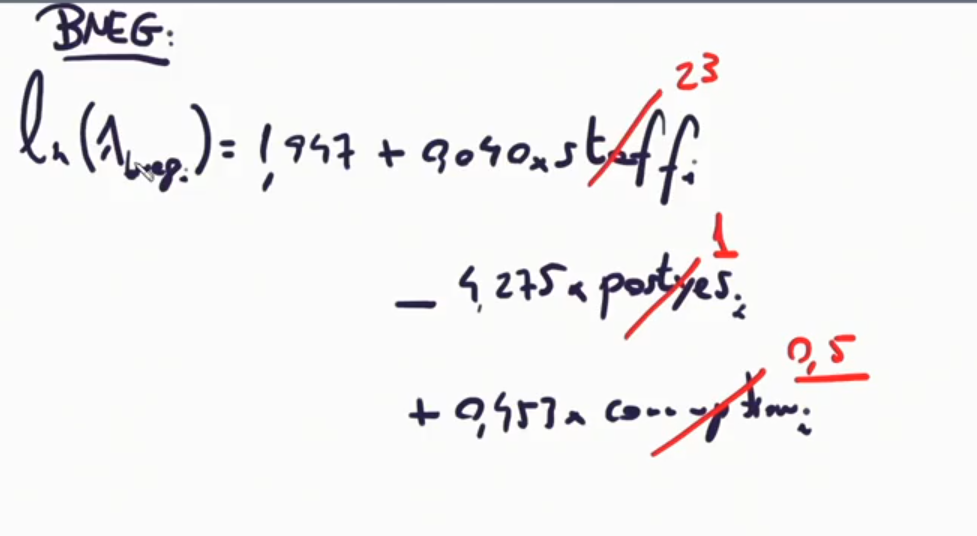 BNEG:
23
ln(λbneg.i) = 1,947 + 0,040 x staffi
1
- 4,275 x postyesi
0,5
+ 0,453 x corruptioni